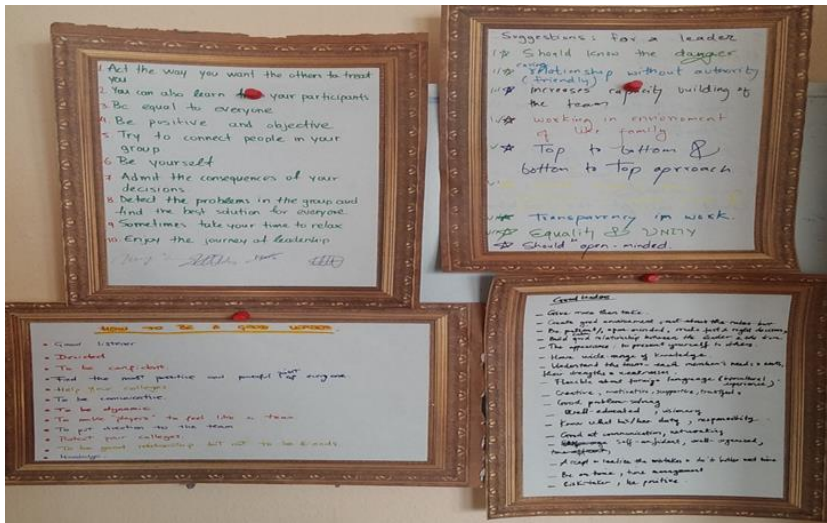 1. Act the way you want the others to treat
you
2. You can also learn your participants
3. Be equal to everyone
4. Be positive and objective
5. Try to connect people in your
group
6. Be yourself
7. Admit the consequences of your
decisions
8. Detect the problems in the group and
find the best solution for everyone
9. Sometimes take your time to relax
10. Enjoy the journey of leadership
Suggestions: for a leader
Should know the danger
relationship without authority
(friendly)
Increases capacity building of
the team
working in environment
of like family
Top to bottom &
bottom to Top aproach
Transparency in work.
Equality & UNITY
Should open-minded.
HOW TO BE A GOOD LEADER
Good listener
Decided
To be confident
Find the most positive and of everyone
Help your colleges
To be
To be dynamic
To make "players" to feel like a team
To put direction to the team
Protect your colleges
To be good relationship but not to be friends.
Knowledge
Good leaders
- Give more than take
- Create good environment, not about the rules but
- Be patient, open minded, make just & right decisions,
- Build good relationship between the leader & the
- The appearance, to present yourself to others
- Have wide range of knowledge
- Understand the team each member's needs &
their strengths & weaknesses
- Flexible about foreign language
- Creative, motivative, supportive,
- Good problem solving
- Well-educated, visionary
- Know what his/her duty, responsibility
- Good at communication, networking
- self-confident, well-organised,
- Accept & realize the mistakes & do it better next time
- Be on time, time management
- Risk-taker, be positive